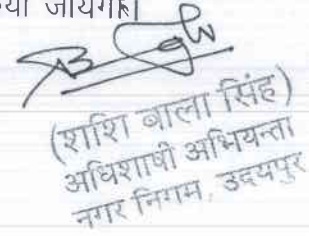 जायगा।
(शशि बाला सिंह)
अधिशाषी अभियन्ता
नगर निगम, उदयपुर